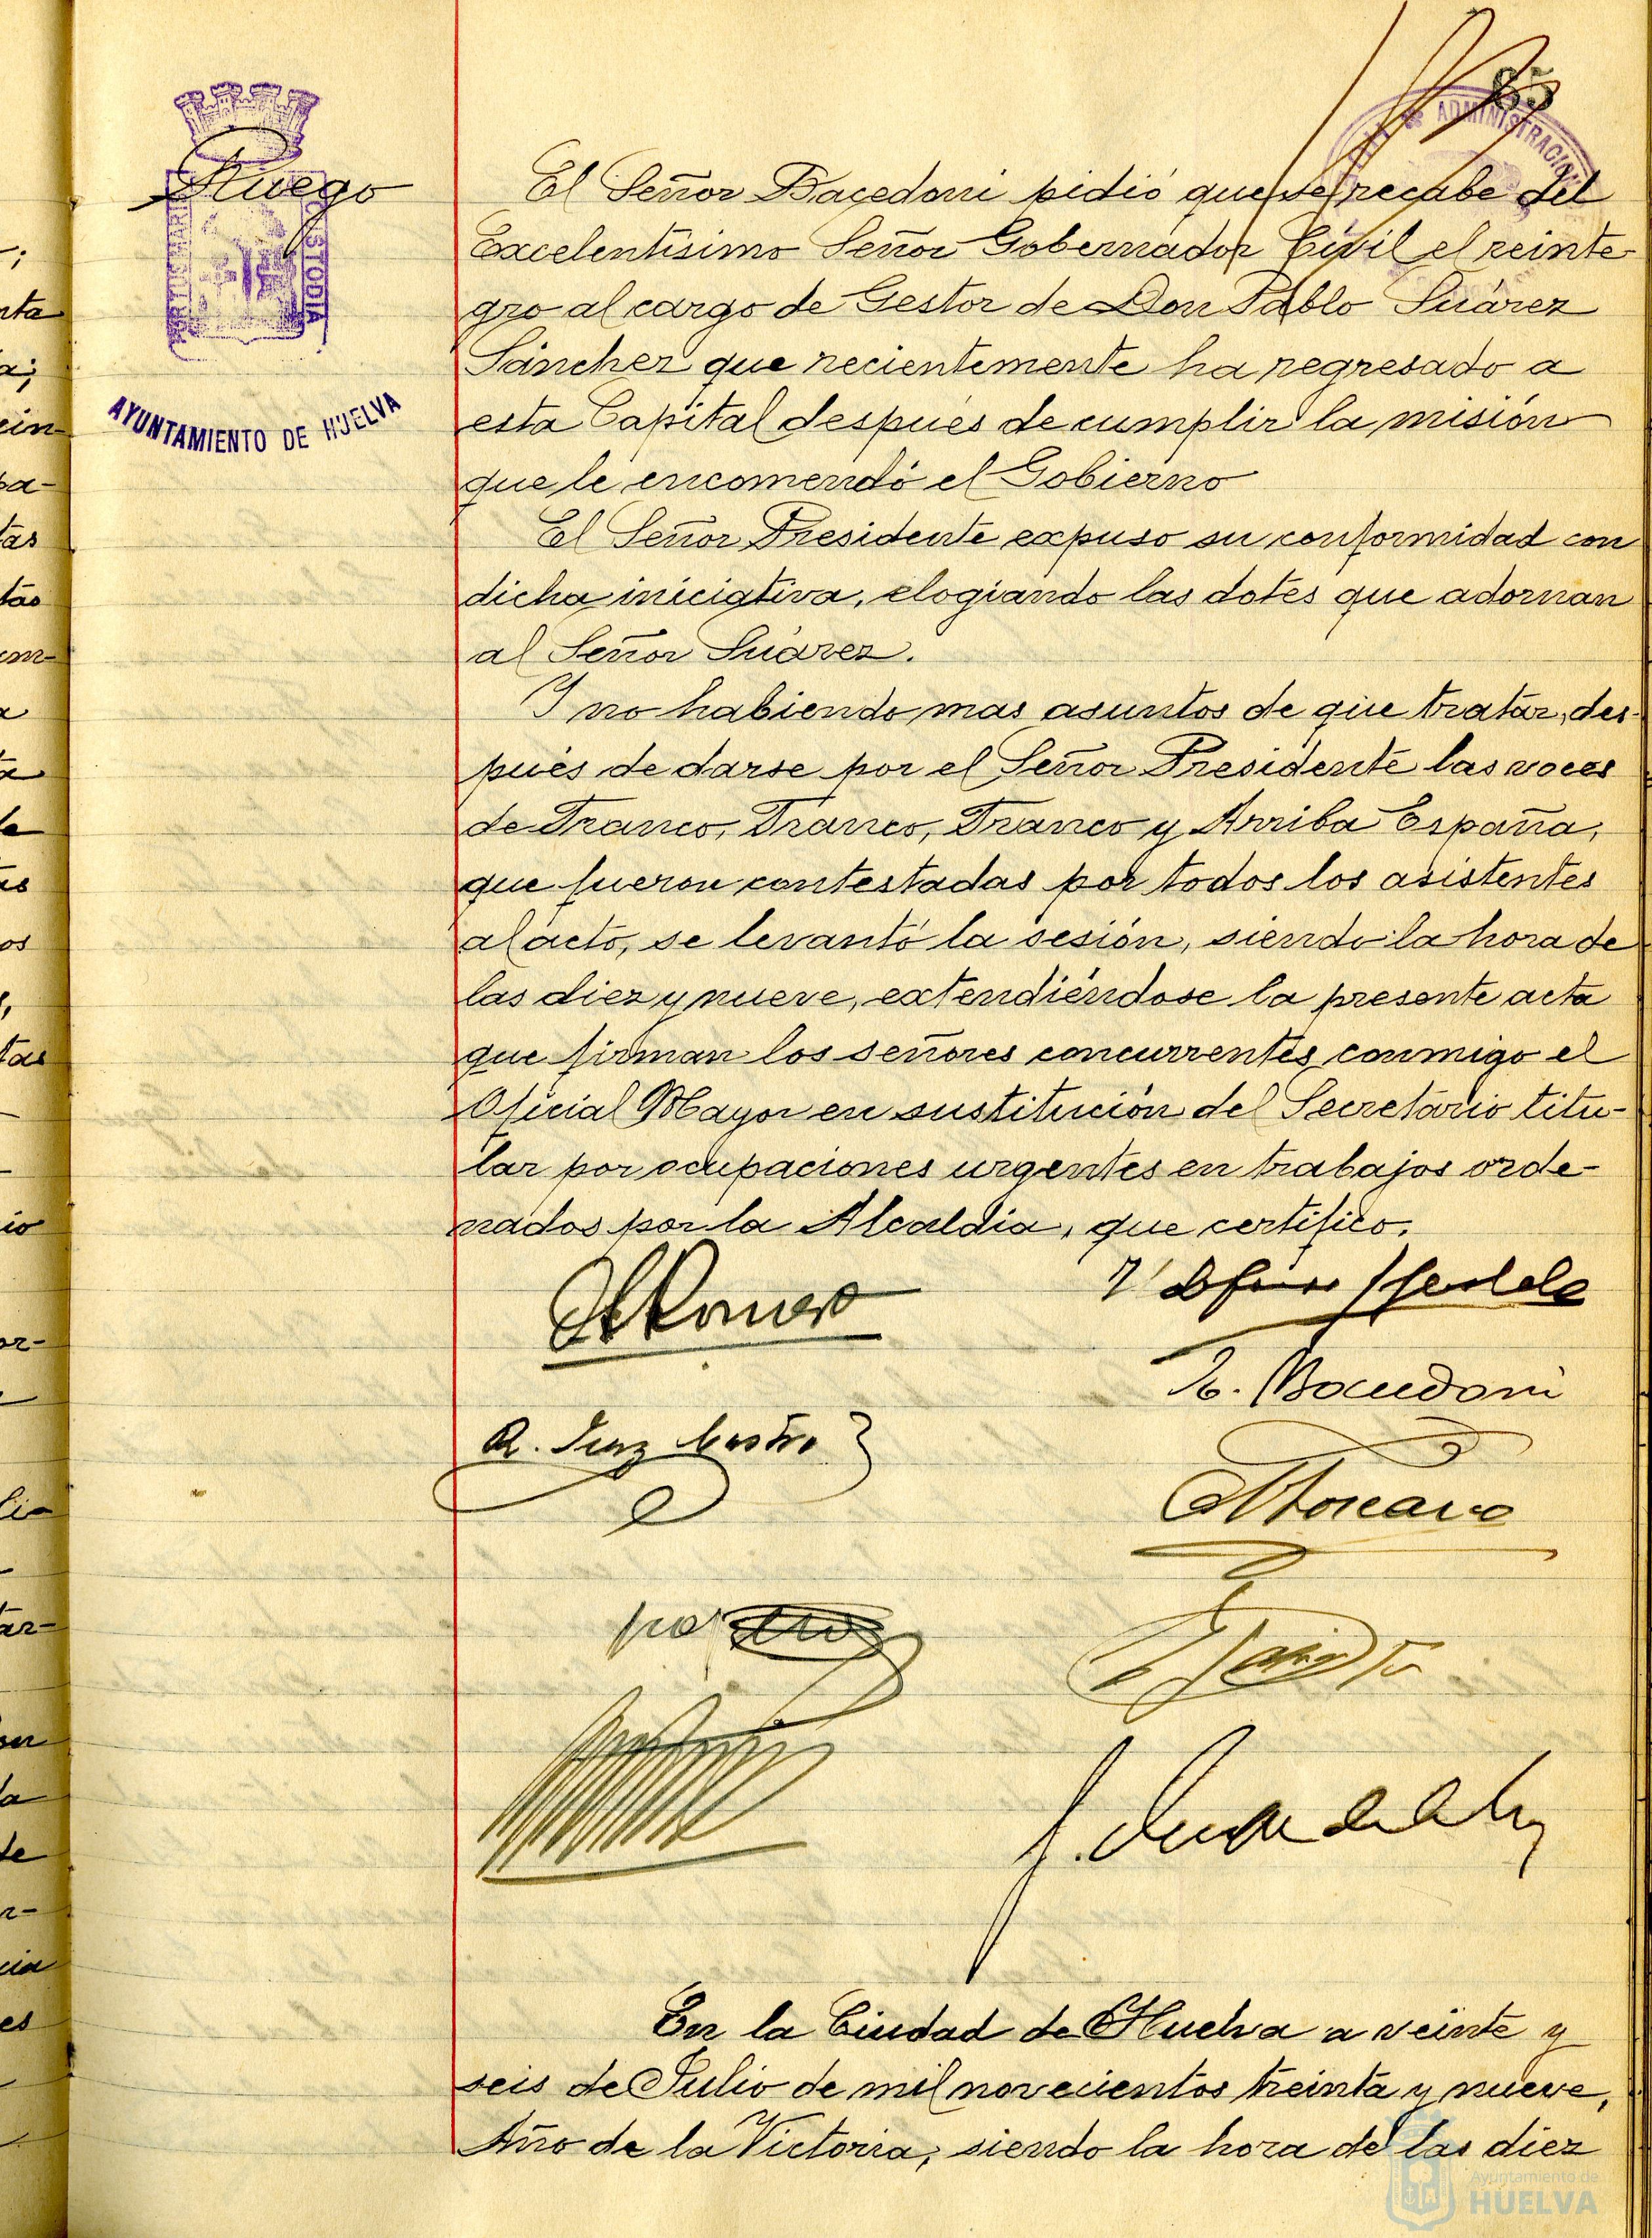 85
ADMINISTRACION
Ruego
PORTUS MARIS
CUSTODIA
AYUNTAMIENTO DE HUELVA
El Señor Bacedoni pidió que se recabe del
Excelentisimo Señor Gobernador Civil el reinte-
gro al cargo de Gestor de Don Pablo Suárez
Sánchez que recientemente ha regresado a
esta Capital después de cumplir la misión
que le encomendó el Gobierno
El Señor Presidente expuso su conformidad con
dicha iniciativa, elogiando las dotes que adornan
al Señor Suárez.
Y no habiendo mas asuntos de que tratar, des-
pués de darse por el Señor Presidente las voces
de Franco, Franco, Franco y Arriba España,
que fueron contestadas por todos los asistentes
al acto, se levantó la sesión, siendo la hora de
las diez y nueve, extendiéndose la presente acta
que firman los señores concurrentes conmigo el
Oficial Mayor en sustitución del Secretario titu-
lar por ocupaciones urgentes en trabajos orde-
nados por la Alcaldia, que certifico.
Bacedoni
En la Ciudad de Huelva a veinte y
seis de Julio de mil novecientos treinta y nueve,
Año de la Victoria, siendo la hora de las diez
Ayuntamiento de
HUELVA